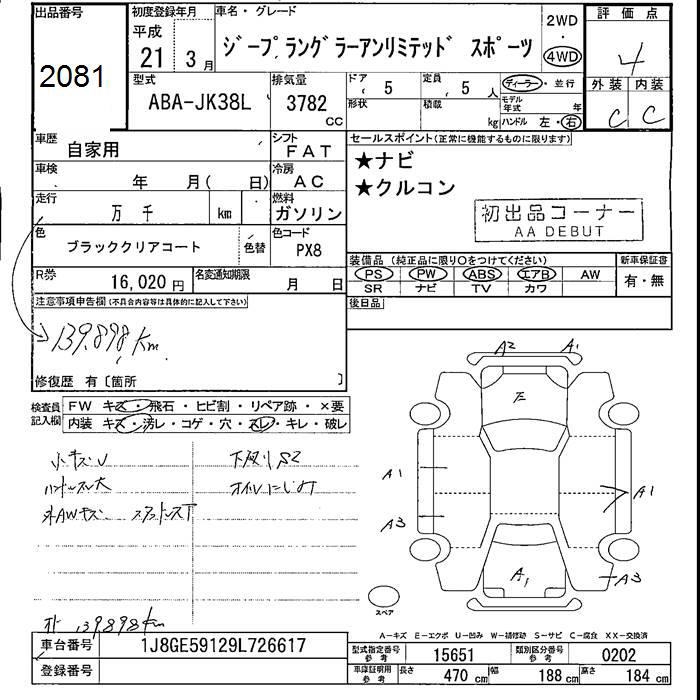 出品番号
2081
初度登録年月
平成
21 3月
車名・グレード
ジープ ラングラーアンリミテッド スポーツ
2WD
・
4WD
評価点
4
外装 内装
C C
型式
ABA-JK38L
排気量
3782
CC
ドア 5
形状
定員 5 人
積載 kg
ディーラー・並行
モデル年式 年
ハンドル 左・右
車歴
自家用
シフト
FAT
車検
年 月( 日)
冷房
AC
走行
万 千 km
燃料
ガソリン
色
ブラッククリアコート
色替
色コード
PX8
R券
16,020 円
名変通知期限
月 日
セールスポイント(正常に機能するものに限ります)
★ナビ
★クルコン
初出品コーナー
AA DEBUT
装備品(純正品に限り○をつけてください)
新車保証書
PS PW ABS エアB AW
SR ナビ TV カワ
有・無
後日品
注意事項申告欄(不具合内容等は具体的に記入して下さい)
139,898km
修復歴 有〔箇所 〕
検査員
記入欄
FW キズ・飛石・ヒビ割・リペア跡・×要
内装 キズ・汚レ・コゲ・穴・スレ・キレ・破レ
小キズU
下廻りS2
ハンドルスレ大
オイルにじみ
外AWキズ
139898km
A2 A1
E
A1
A3
A1
A1
A3
スペア
A-キズ E-エクボ U-凹み W-補修跡 S-サビ C-腐食 XX-交換済
車台番号
1J8GE59129L726617
登録番号
型式指定番号
参考
15651
類別区分番号
参考
0202
車庫証明用
参考
長さ 470 cm 幅 188 cm 高さ 184 cm